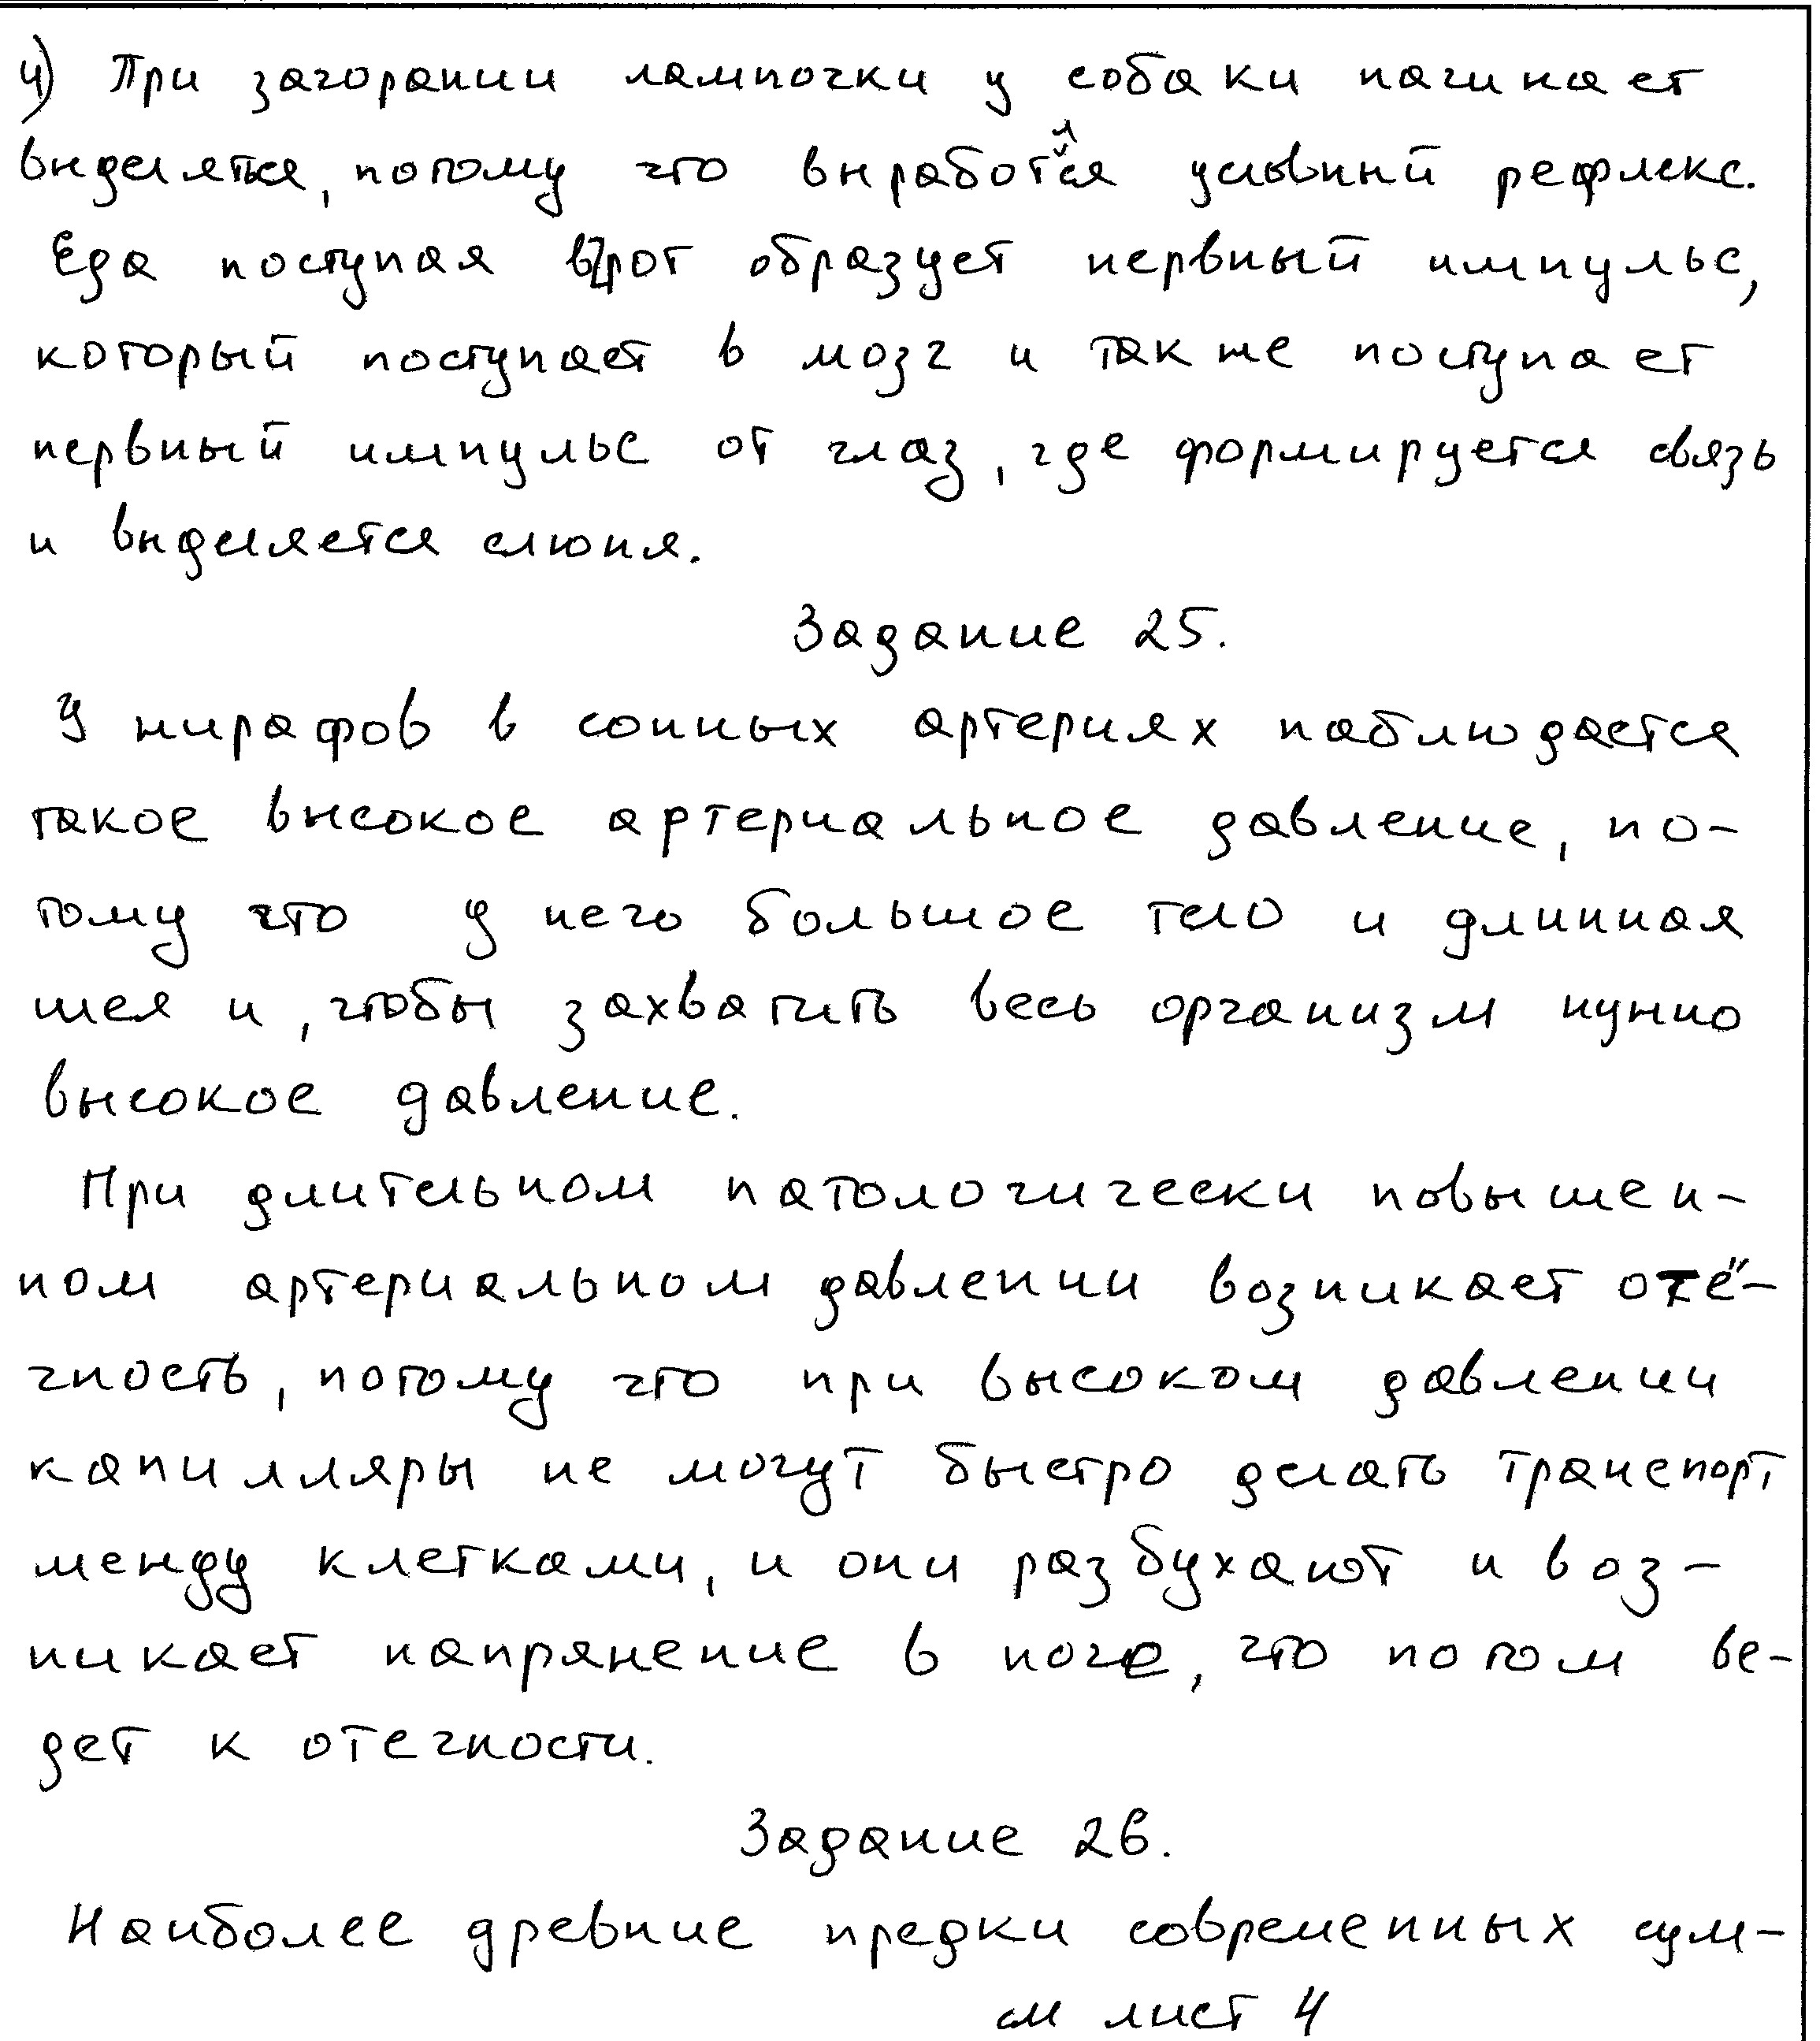 4) При загорании лампочки у собаки начинает
выделяться, потому что выработался условный рефлекс.
Еда поступая в рот образует нервный импульс,
который поступает в мозг и также поступает
нервный импульс от глаз, где формируется связь
и выделяется слюня.
Задание 25.
У жирафов в сонных артериях наблюдается
такое высокое артериальное давление, по-
тому что у него большое тело и длинная
шея и, чтобы захватить весь организм нужно
высокое давление.
При длительном патологически повышен-
ном артериальном давлении возникает отё-
чность, потому что при высоком давлении
капилляры не могут быстро делать транспорт
между клетками, и они разбухают и воз-
никает напряжение в ноге, что потом ве-
дет к отечности.
Задание 26.
Наиболее древние предки современных сум-
см лист 4